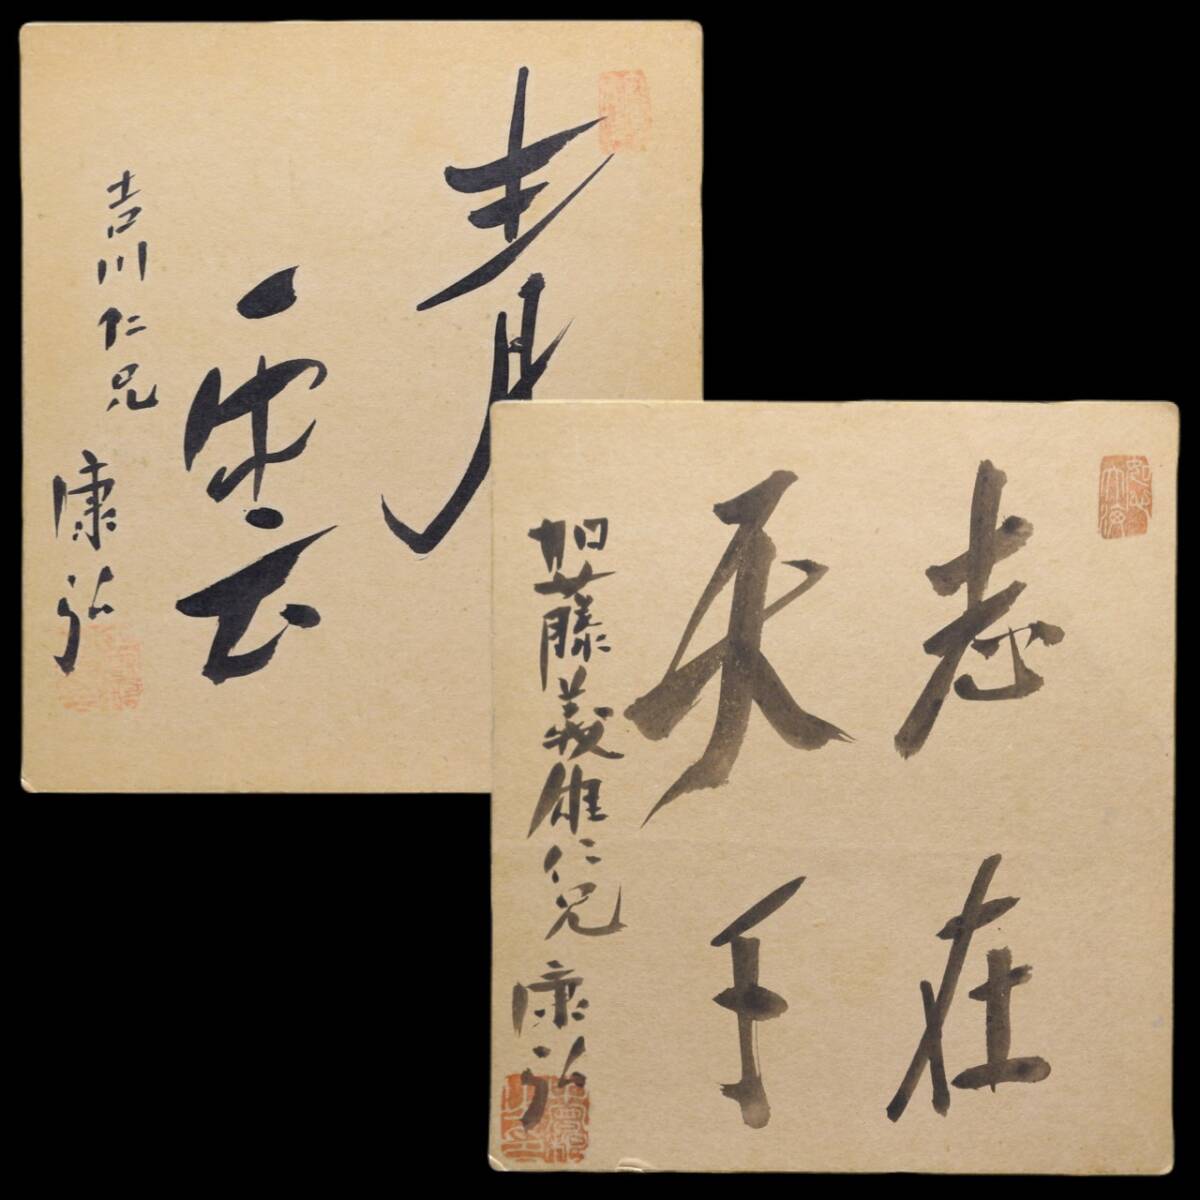 青
雲
吉川仁兄
康弘
志在
天下
加藤義雄仁兄
康弘